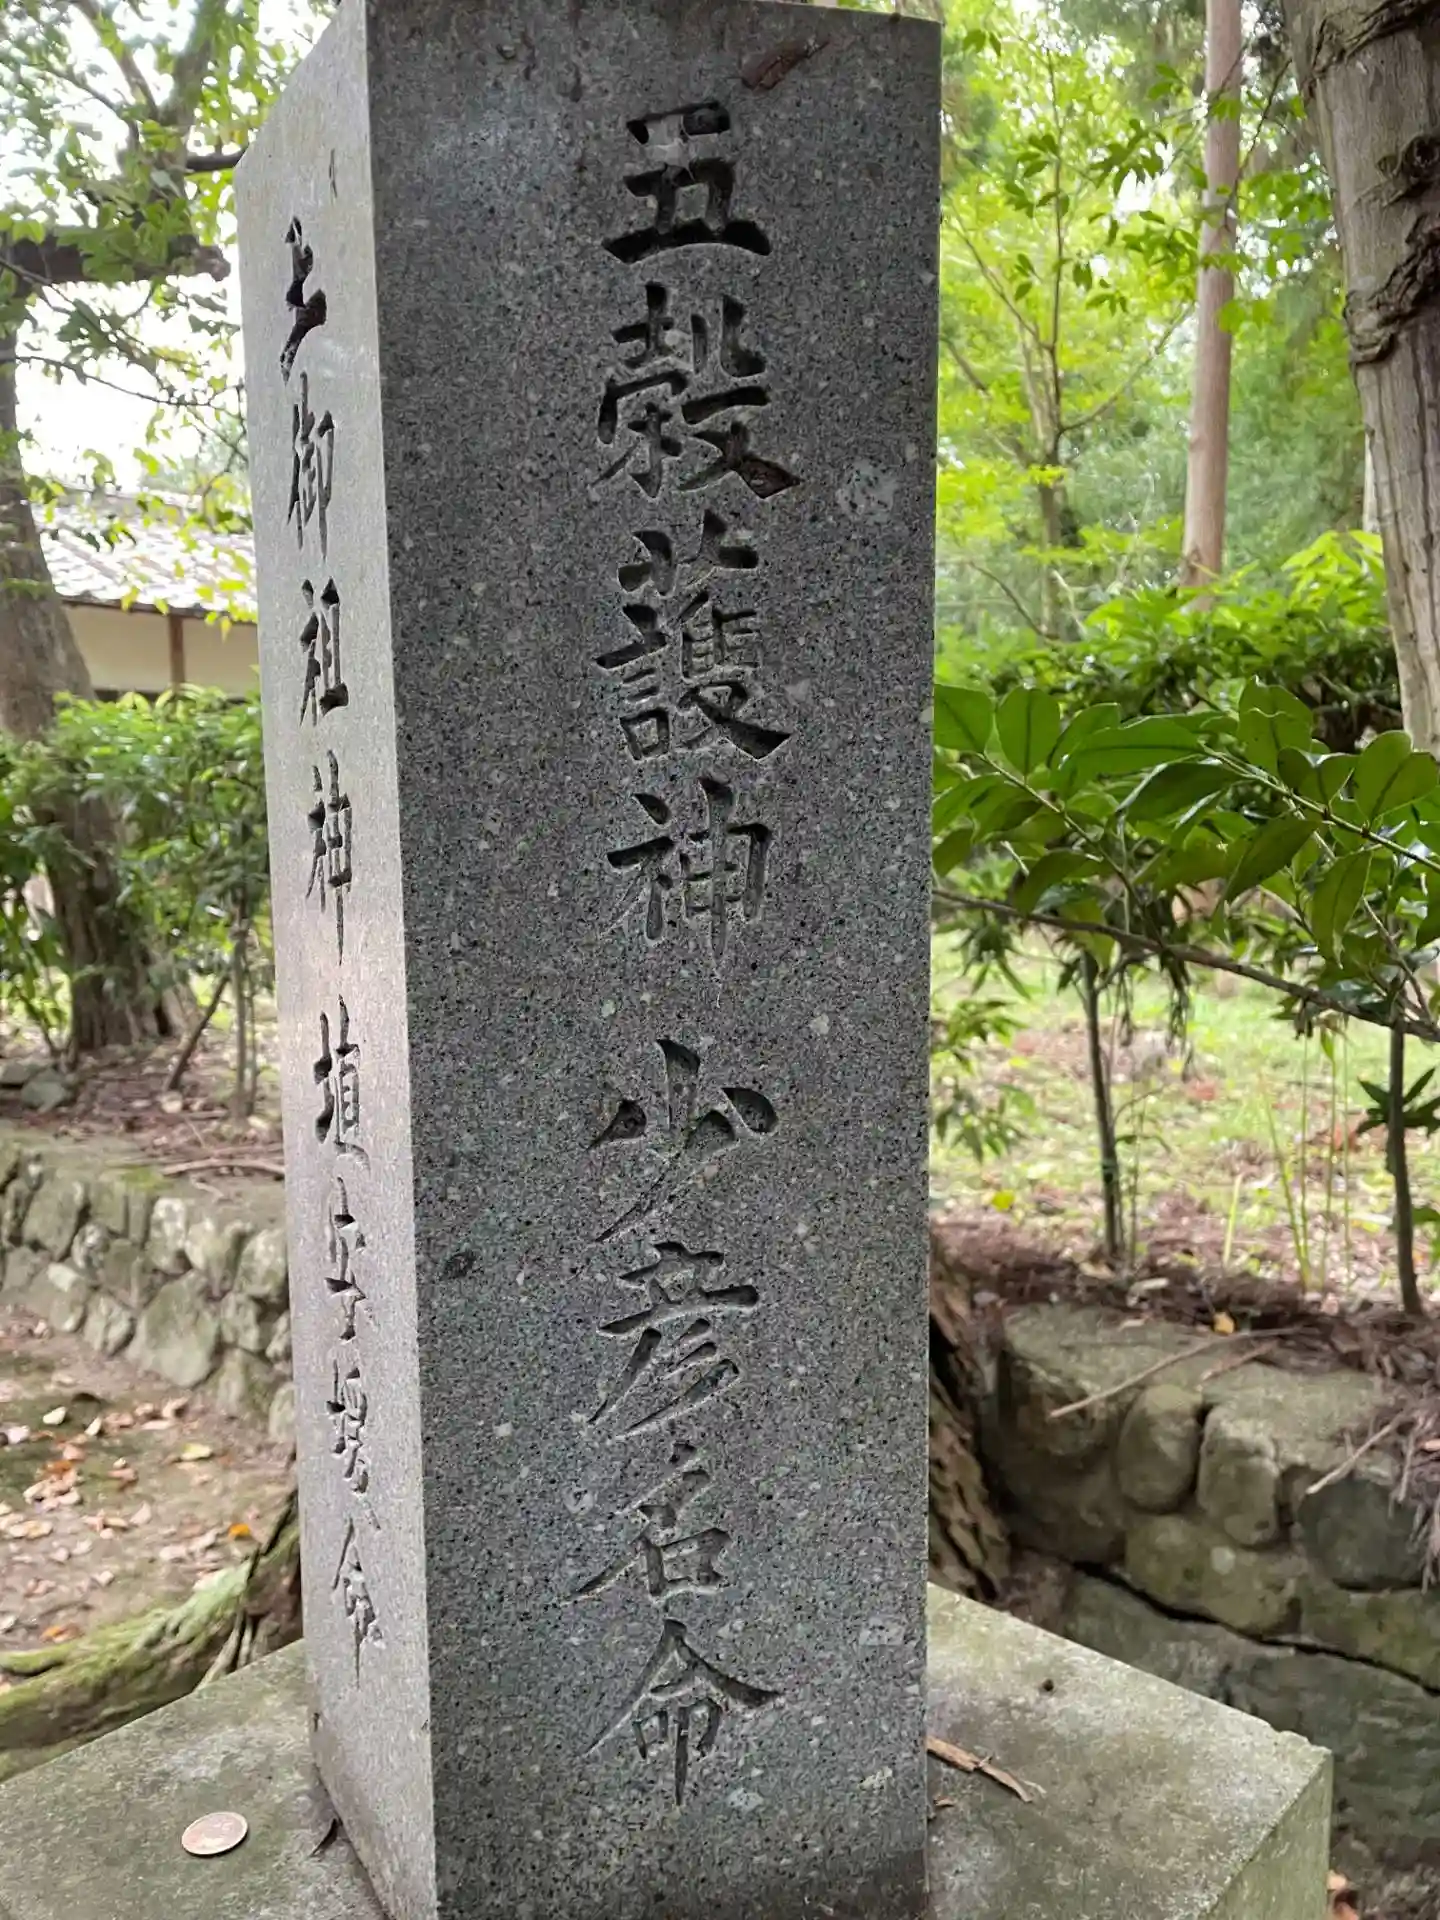 五穀護神少彦名命
土御祖神埴安媛命